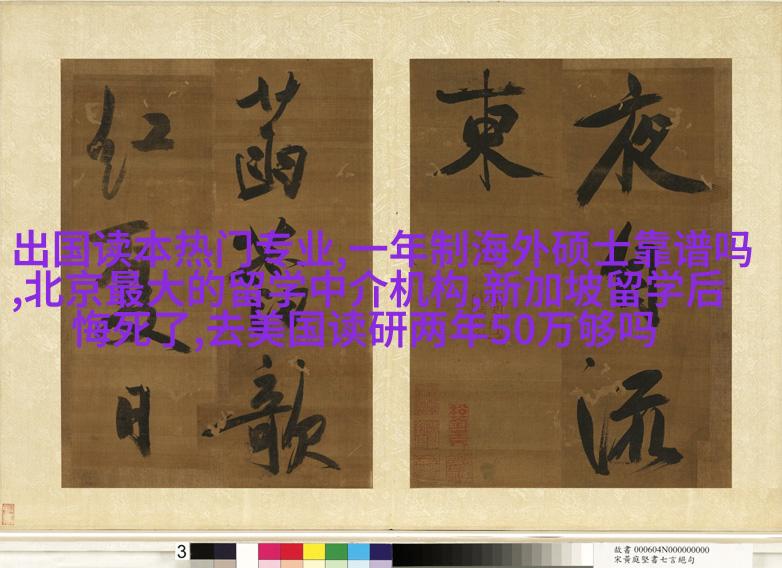 夜 流
東
菡 歌
紅 日
出国读本热门专业,一年制海外硕士靠谱吗
,北京最大的留学中介机构,新加坡留学后
悔死了,去美国读研两年50万够吗
3
故書 000604N000000000
宋黃庭堅書七言絕句